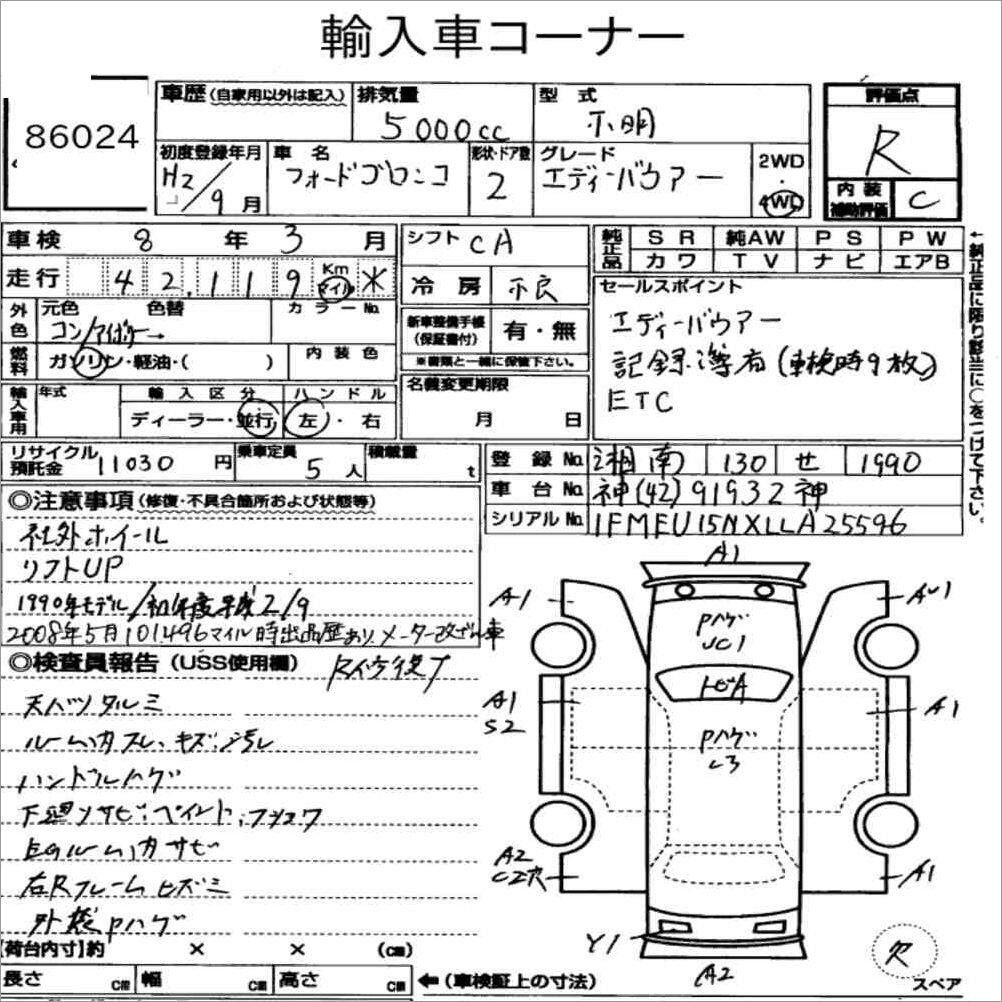 輸入車コーナー
86024
車歴(自家用以外は記入) 排気量 型式 評価点
5000cc 不明 R
初度登録年月 車名 形状・ドア数 グレード 2WD・4WD
H2/9月 フォードブロンコ 2 エディーバウアー
内装補助評価 C
車検 8年3月 シフト CA
純正品 SR 純AW PS PW
カワ TV ナビ エアB
走行 42,119 Km マイル *
冷房 不良
セールスポイント
エディーバウアー
記録簿有(車検時9枚)
ETC
外色 元色 色替 カラーNo.
コン/アイボリー→
新車整備手帳(保証書付) 有・無
※書類と一緒に保管下さい。
燃料 ガソリン・軽油・( ) 内装色
名義変更期限
月 日
輸入車用 年式 輸入区分 ハンドル
ディーラー・並行 左・右
←純正品に限り該当に○をつけて下さい。
リサイクル預託金 11030円 乗車定員 5人 積載量 t
登録No. 湘南 130 せ 1990
車台No. 神(42)91932神
シリアルNo. 1FMEU15NXLLA25596
◎注意事項(修復・不具合箇所および状態等)
社外ホイール
リフトUP
1990年モデル/初年度平成2/9
2008年5月101496マイル時出品歴あり メーター改ざん車
◎検査員報告(USS使用欄)
天バリタルミ
ルーム内スレ、キズ、汚レ
ハンドルハゲ
下廻リサビ、ペイント、フショク
ルーム内サビ
右Rフレームヒズミ
外装Pハゲ
A1
A1
AU1
Pハゲ
UC1
トビA
A1
S2
A1
Pハゲ
A2
C2穴
A1
Y1
A2
R
スペア
【荷台内寸】約 × × (cm)
長さ cm 幅 cm 高さ cm ←(車検証上の寸法)